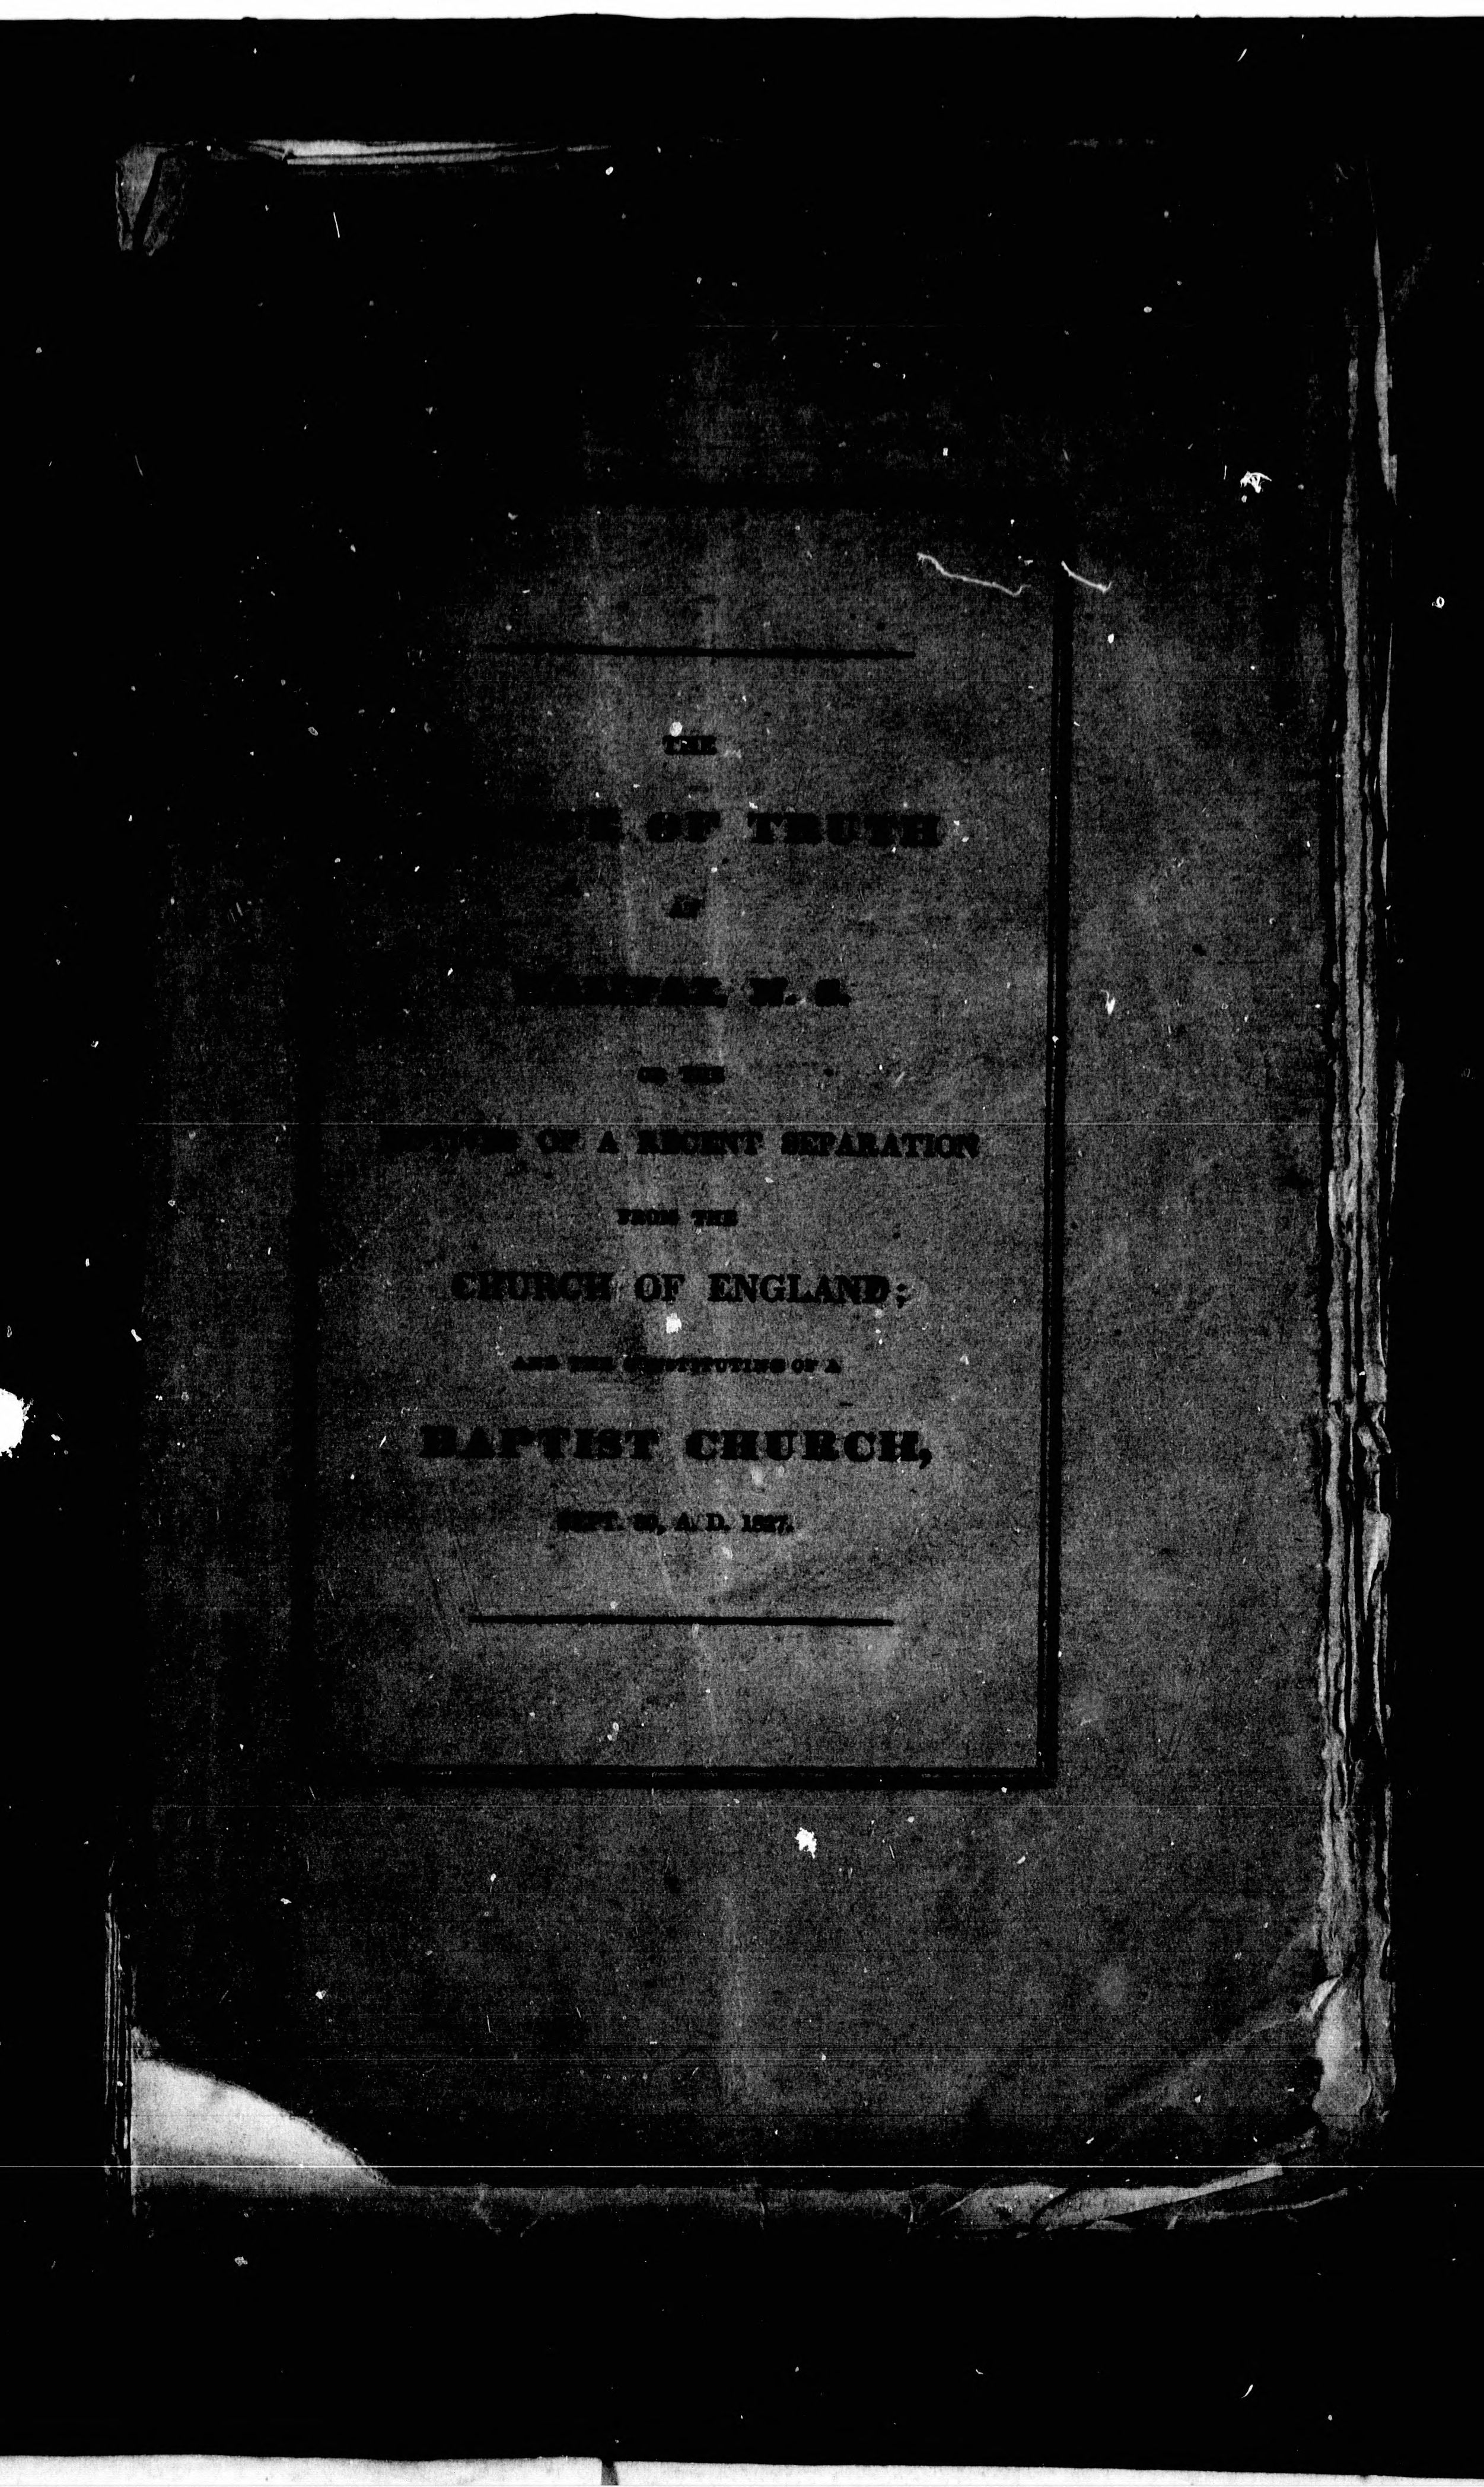 THE
OF TRUTH
AT
HALIFAX, N. S.
OR THE
OF A RECENT SEPARATION
FROM THE
CHURCH OF ENGLAND;
AND THE CONSTITUTING OF A
BAPTIST CHURCH,
SEPT. 30, A. D. 1827.